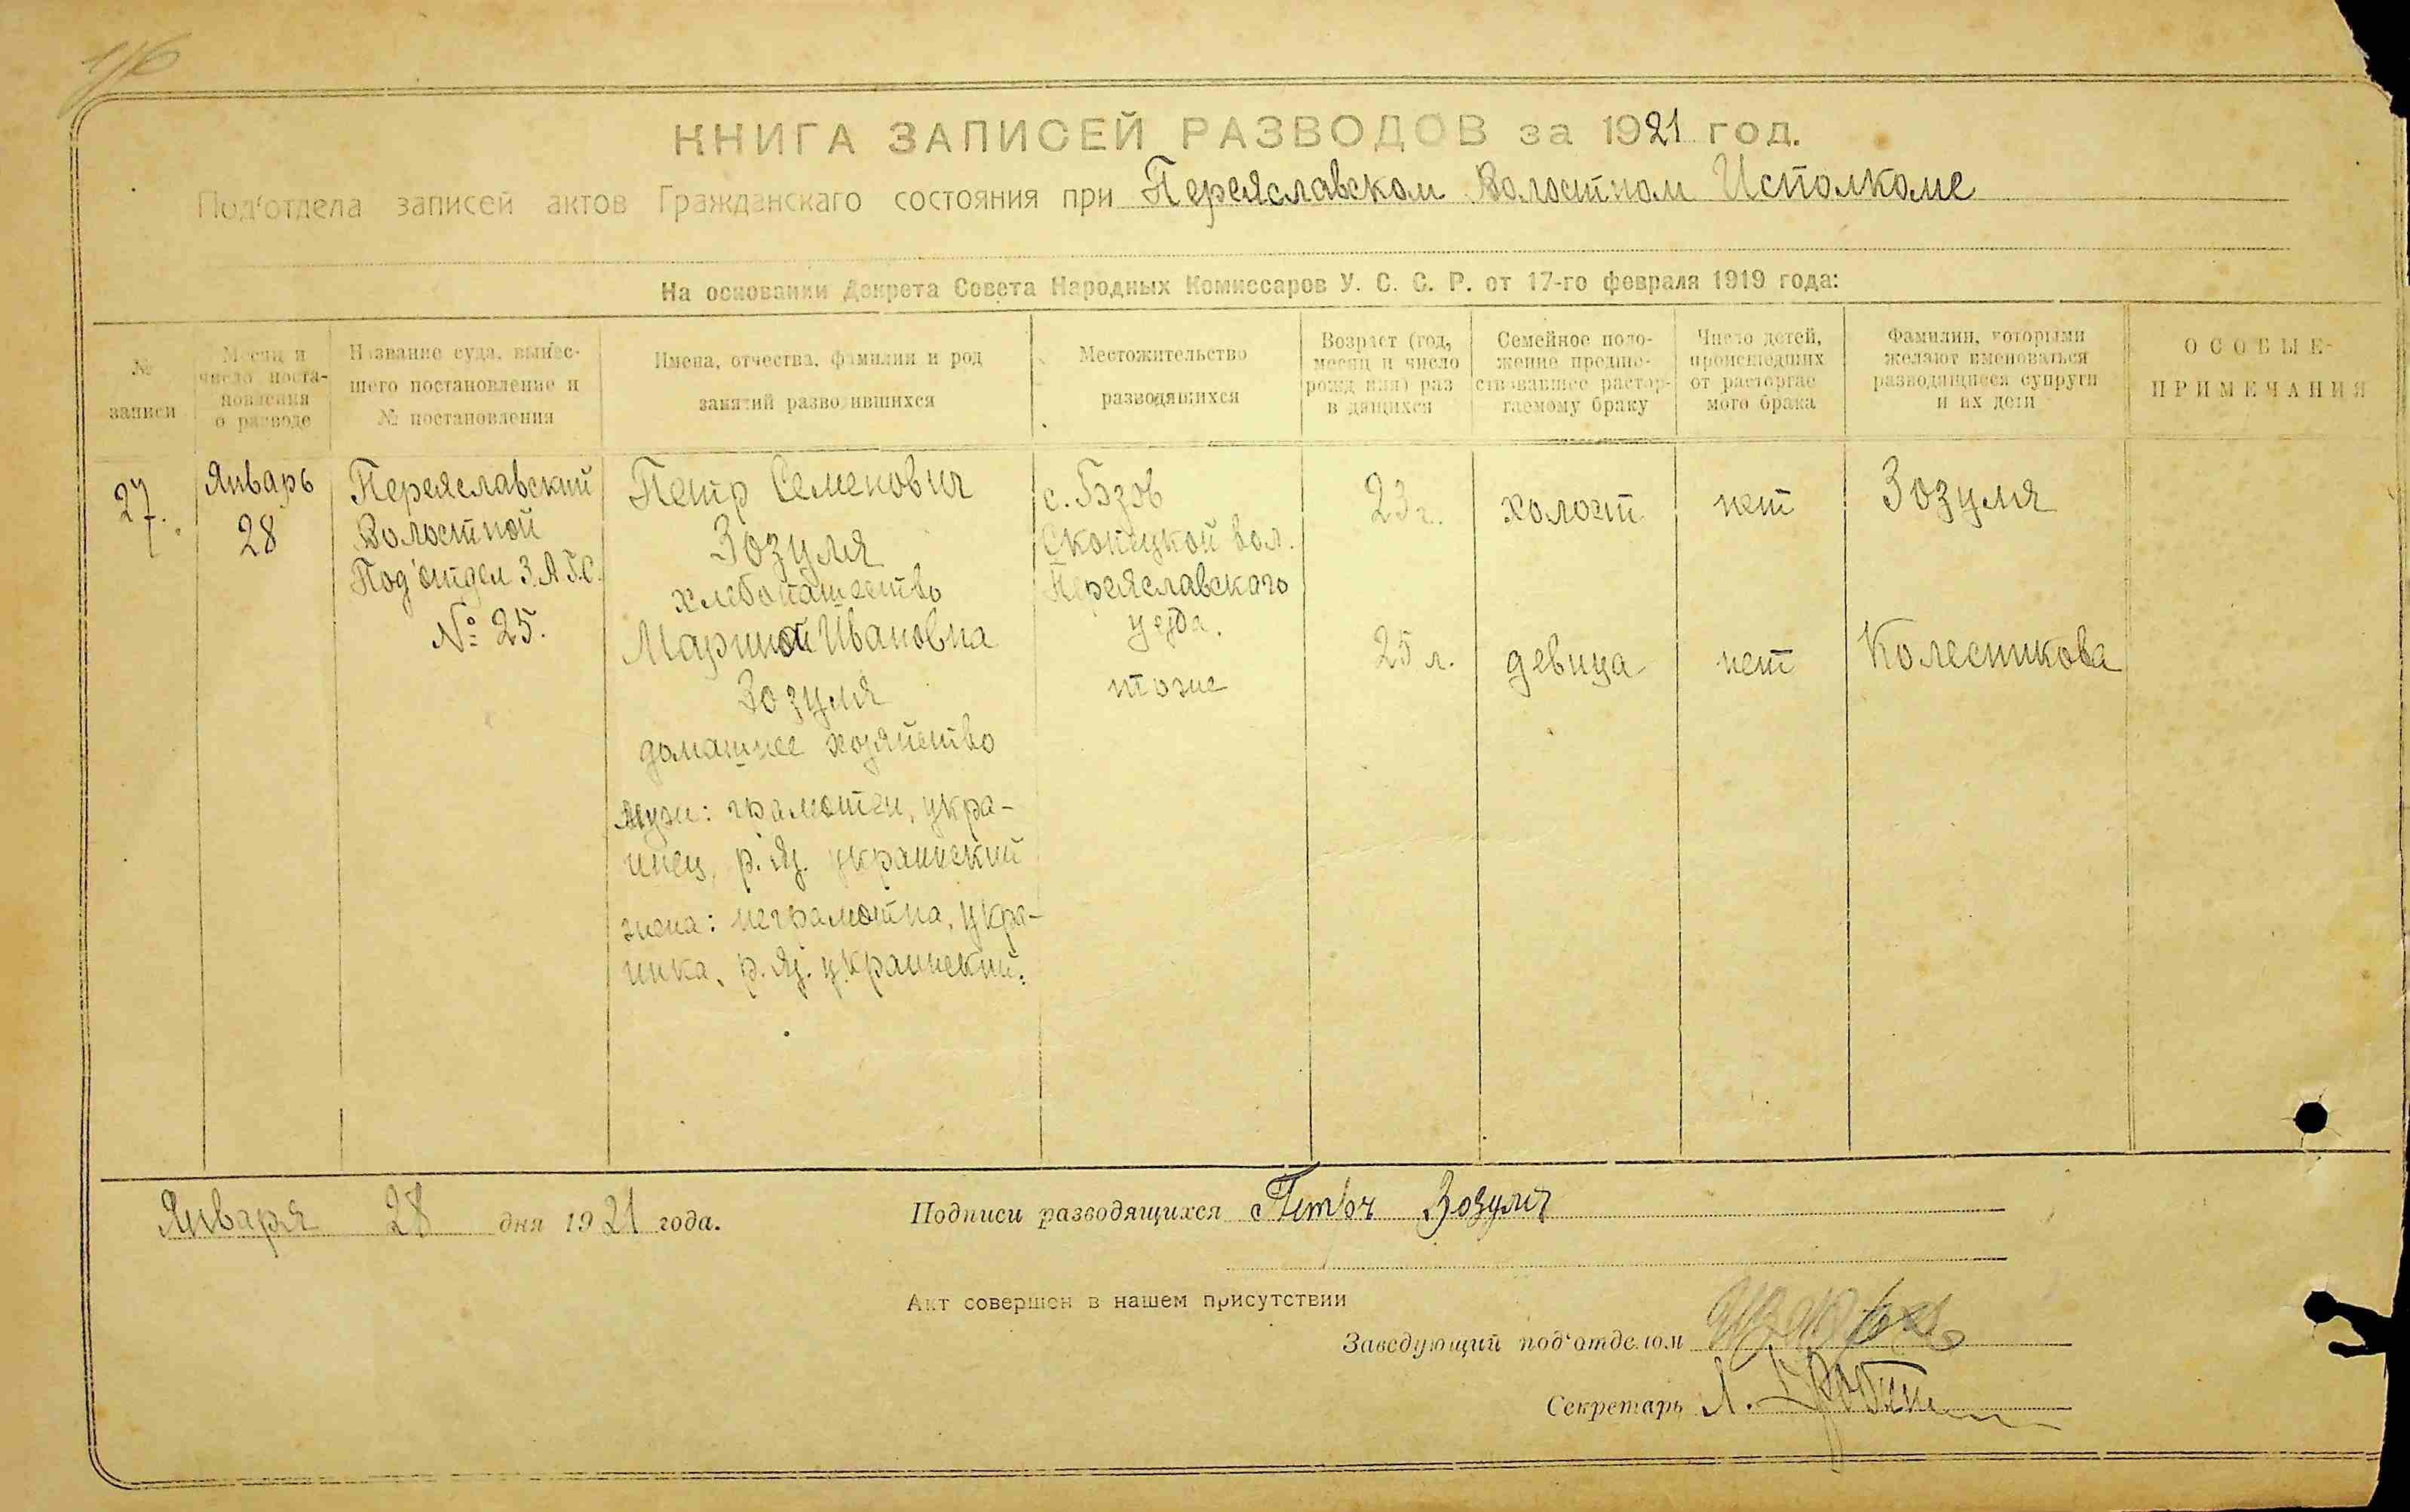 КНИГА ЗАПИСЕЙ РАЗВОДОВ за 1921 год.
Под'отдела записей актов Гражданскаго состояния при Переяславском Волостном Исполкоме
На основании Декрета Совета Народных Комиссаров У. С. С. Р. от 17-го февраля 1919 года:
№ записи
Месяц и число поста-
новления
о разводе
Название суда, вынес-
шего постановление и
№ постановления
Имена, отчества, фамилии и род
занятий разводившихся
Местожительство
разводящихся
Возраст (год,
месяц и число
рожд ния) раз
в дящихся
Семейное поло-
жение предше-
ствовавшее растор-
гаемому браку
Число детей,
происшедших
от расторгае
мого брака
Фамилии, которыми
желают именоваться
разводящиеся супруги
и их дети
ОСОБЫЕ
ПРИМЕЧАНИЯ
27.
Январь
28
Переяславский
Волостной
Под'отдел З.А.Г.С.
№ 25.
Петр Семенович
Зозуля
хлебопашество
с. Бзов
Скопецкой вол.
Переяславскаго
уезда.
23 г.
холост
нет
Зозуля
Ивановна
Зозуля
домашнее хозяйство
тоже
25 л.
девица
нет
Колесникова
муж: грамотен, укра-
инец, р. яз. украинский
жена: неграмотна, укра-
инка, р. яз. украинский.
Января 28 дня 1921 года.
Подписи разводящихся Петър Зозуля
Акт совершен в нашем присутствии
Заведующий под'отделом
Секретарь Л.